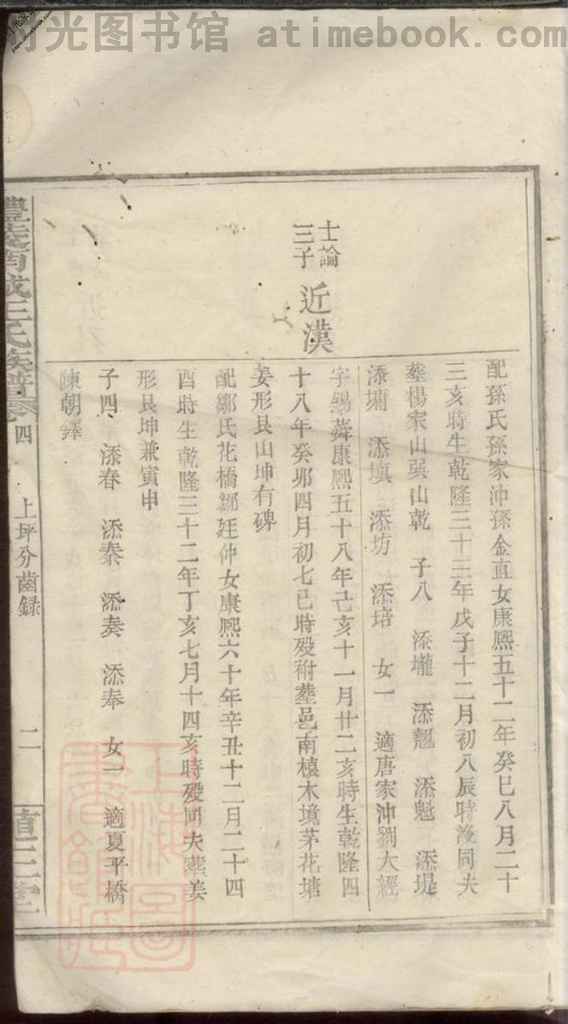 时光图书馆 atimebook.com
士論
三子
近漢
配孫氏孫家沖孫金直女康熙五十二年癸巳八月二十
三亥時生乾隆三十三年戊子十二月初八辰時歿同夫
葬楊家山巽山乾 子八 添壠 添翹 添魁 添堤
添墉 添填 添坊 添培 女一 適唐家沖劉大經
字錫蕣康熙五十八年己亥十一月廿二亥時生乾隆四
十八年癸卯四月初七巳時歿祔葬邑南檱木境茅花塘
姜形艮山坤有碑
配鄒氏花橋鄒廷仲女康熙六十年辛丑十二月二十四
酉時生乾隆三十二年丁亥七月十四亥時歿同夫葬姜
形艮坤兼寅申
子四 添春 添泰 添奏 添奉 女一 適夏平橋
陳朝鐸
醴陵西城王氏族譜卷四
上坪分齒錄
二
三